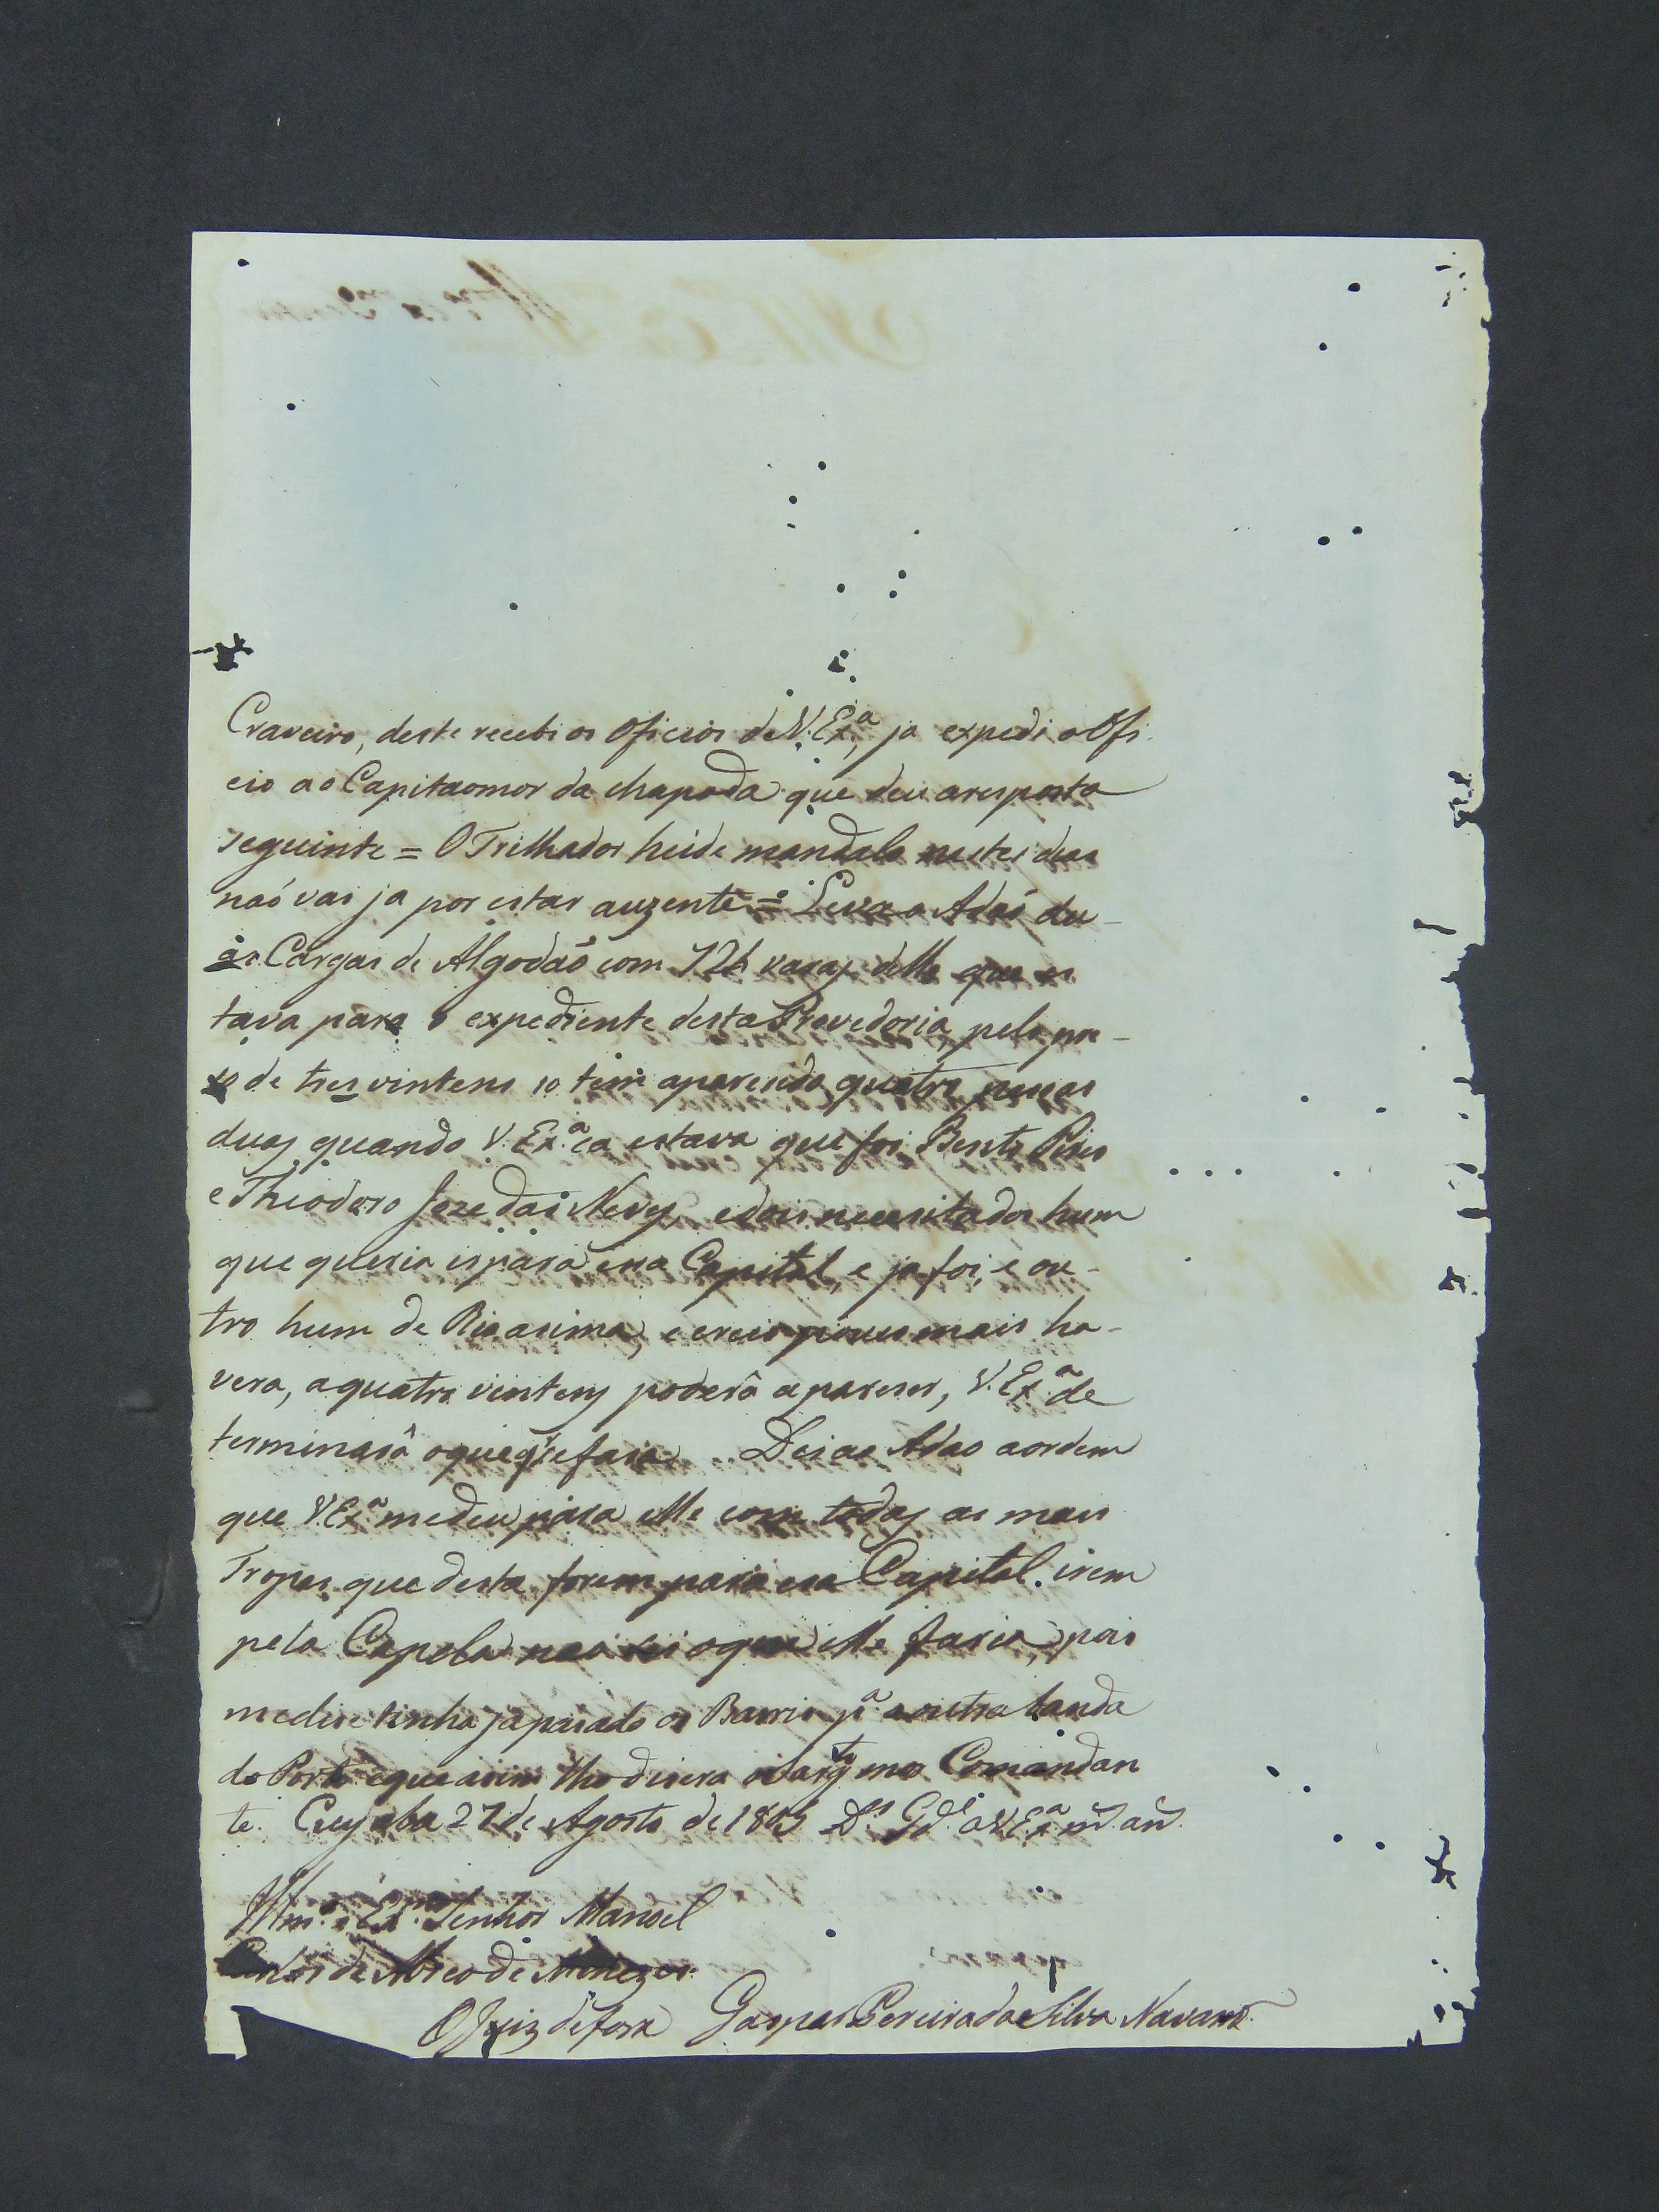 Craveiro, deste recebi os Oficios de V. Ex.ª, ja expedi o Ofi-
cio ao Capitaomor da chapada que deu aresposta
seguinte = O Trilhador heide mandalo nestes dias
naó vai ja por estar auzente = Leva o Adaó du-
as Cargas de Algodaó com 726 varas delle que es
tava para o expediente desta Provedoria, pelo pre-
so de tres vintens so tem aparecido quatro pessoas
duas quando V. Ex.ª ca estava que foi Bento Pires
e Theodoro Joze das Neves, e dois necesitados hum
que queria ir para essa Capital, e ja foi, e ou-
tro hum de Rio asima, e creio poucos mais ha-
vera, a quatro vintens poderâ apareser, V. Ex.ª de
terminarâ oque q' se fasa. Dei ao Adao aordem
que V. Ex.ª medeu para elle com todas as mais
Tropas que desta forem para esa Capital irem
pela Capela naó sei oque elle faria, pois
medise tinha ja pasado os Barris p.ª aoutra banda
do Porto eque asim lho disera o Sarg.to mor Comandan
te. Cuyaba 27 de Agosto de 1805 D.s G.de a V. Ex.ª m.s an.s
Illm.º e Ex.mo Senhor Manoel
Carlos de Abreo de Menezes
O Juiz defora Gaspar Pereira da Silva Navarro